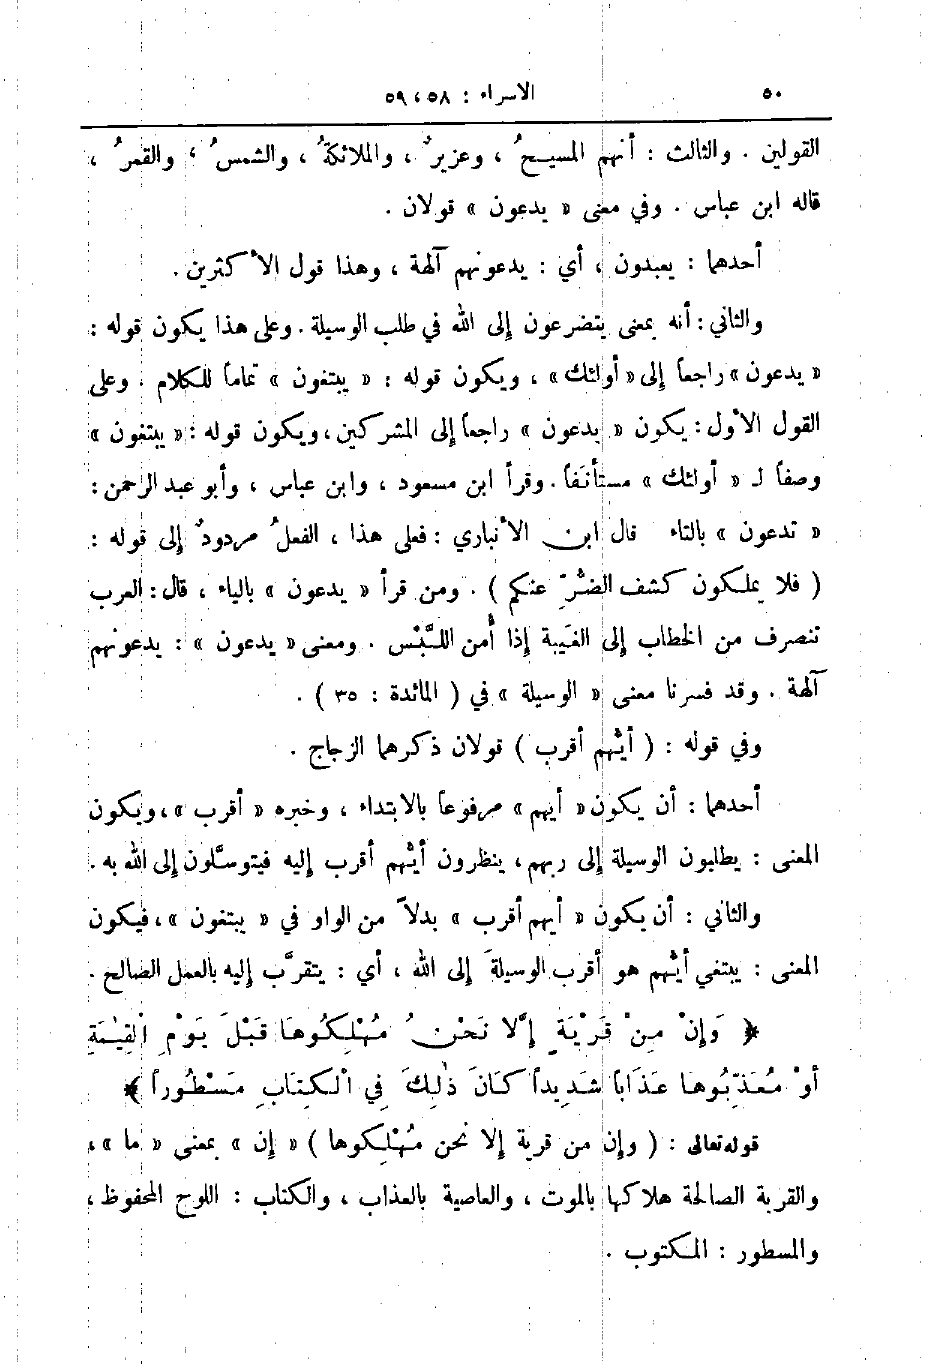 ٥٠ الاسراء : ٥٨ ، ٥٩
القولين . والثالث : أنهم المسيـحُ ، وعزيرٌ ، والملائكةُ ، والشمسُ ، والقمرُ ،
قاله ابن عباس . وفي معنى « يدعون » قولان .
أحدهما : يعبدون ، أي : يدعونهم آلهة ، وهذا قول الأكثرين .
والثاني : أنه بمعنى يتضرعون إلى الله في طلب الوسيلة . وعلى هذا يكون قوله :
« يدعون » راجعاً إلى « أولئك » ، ويكون قوله : « يبتغون » تماماً للكلام . وعلى
القول الأول : يكون « يدعون » راجعاً إلى المشركين ، ويكون قوله : « يبتغون »
وصفاً لـ « أولئك » مستأنَفاً . وقرأ ابن مسعود ، وابن عباس ، وأبو عبد الرحمن :
« تدعون » بالتاء قال ابن الأنباري : فعلى هذا ، الفعلُ مردودٌ إلى قوله :
( فلا يملكون كشف الضُّرِّ عنكم ) . ومن قرأ « يدعون » بالياء ، قال : العرب
تنصرف من الخطاب إلى الغَيبة إذا أُمن اللَّبْس . ومعنى « يدعون » : يدعونهم
آلهة . وقد فسرنا معنى « الوسيلة » في ( المائدة : ٣٥ ) .
وفي قوله : ( أيُّهم أقرب ) قولان ذكرهما الزجاج .
أحدهما : أن يكون « أيهم » مرفوعاً بالابتداء ، وخبره « أقرب » ، ويكون
المعنى : يطلبون الوسيلة إلى ربهم ، ينظرون أيُّهم أقرب إليه فيتوسَّلون إلى الله به .
والثاني : أن يكون « أيهم أقرب » بدلاً من الواو في « يبتغون » ، فيكون
المعنى : يبتغي أيُّهم هو أقرب الوسيلةَ إلى الله ، أي : يتقرَّب إليه بالعمل الصالح .
﴿ وَإِنْ مِنْ قَرْيَةٍ إِلَّا نَحْنُ مُهْلِكُوهَا قَبْلَ يَوْمِ الْقِيٰمَةِ
أَوْ مُعَذِّبُوهَا عَذَاباً شَدِيداً كَانَ ذٰلِكَ فِي الْكِتَابِ مَسْطُوراً ﴾
قوله تعالى : ( وإن من قرية إلا نحن مُهْلِكوها ) « إن » بمعنى « ما » ،
والقرية الصالحة هلاكها بالموت ، والعاصية بالعذاب ، والكتاب : اللوح المحفوظ ،
والمسطور : المكتوب .